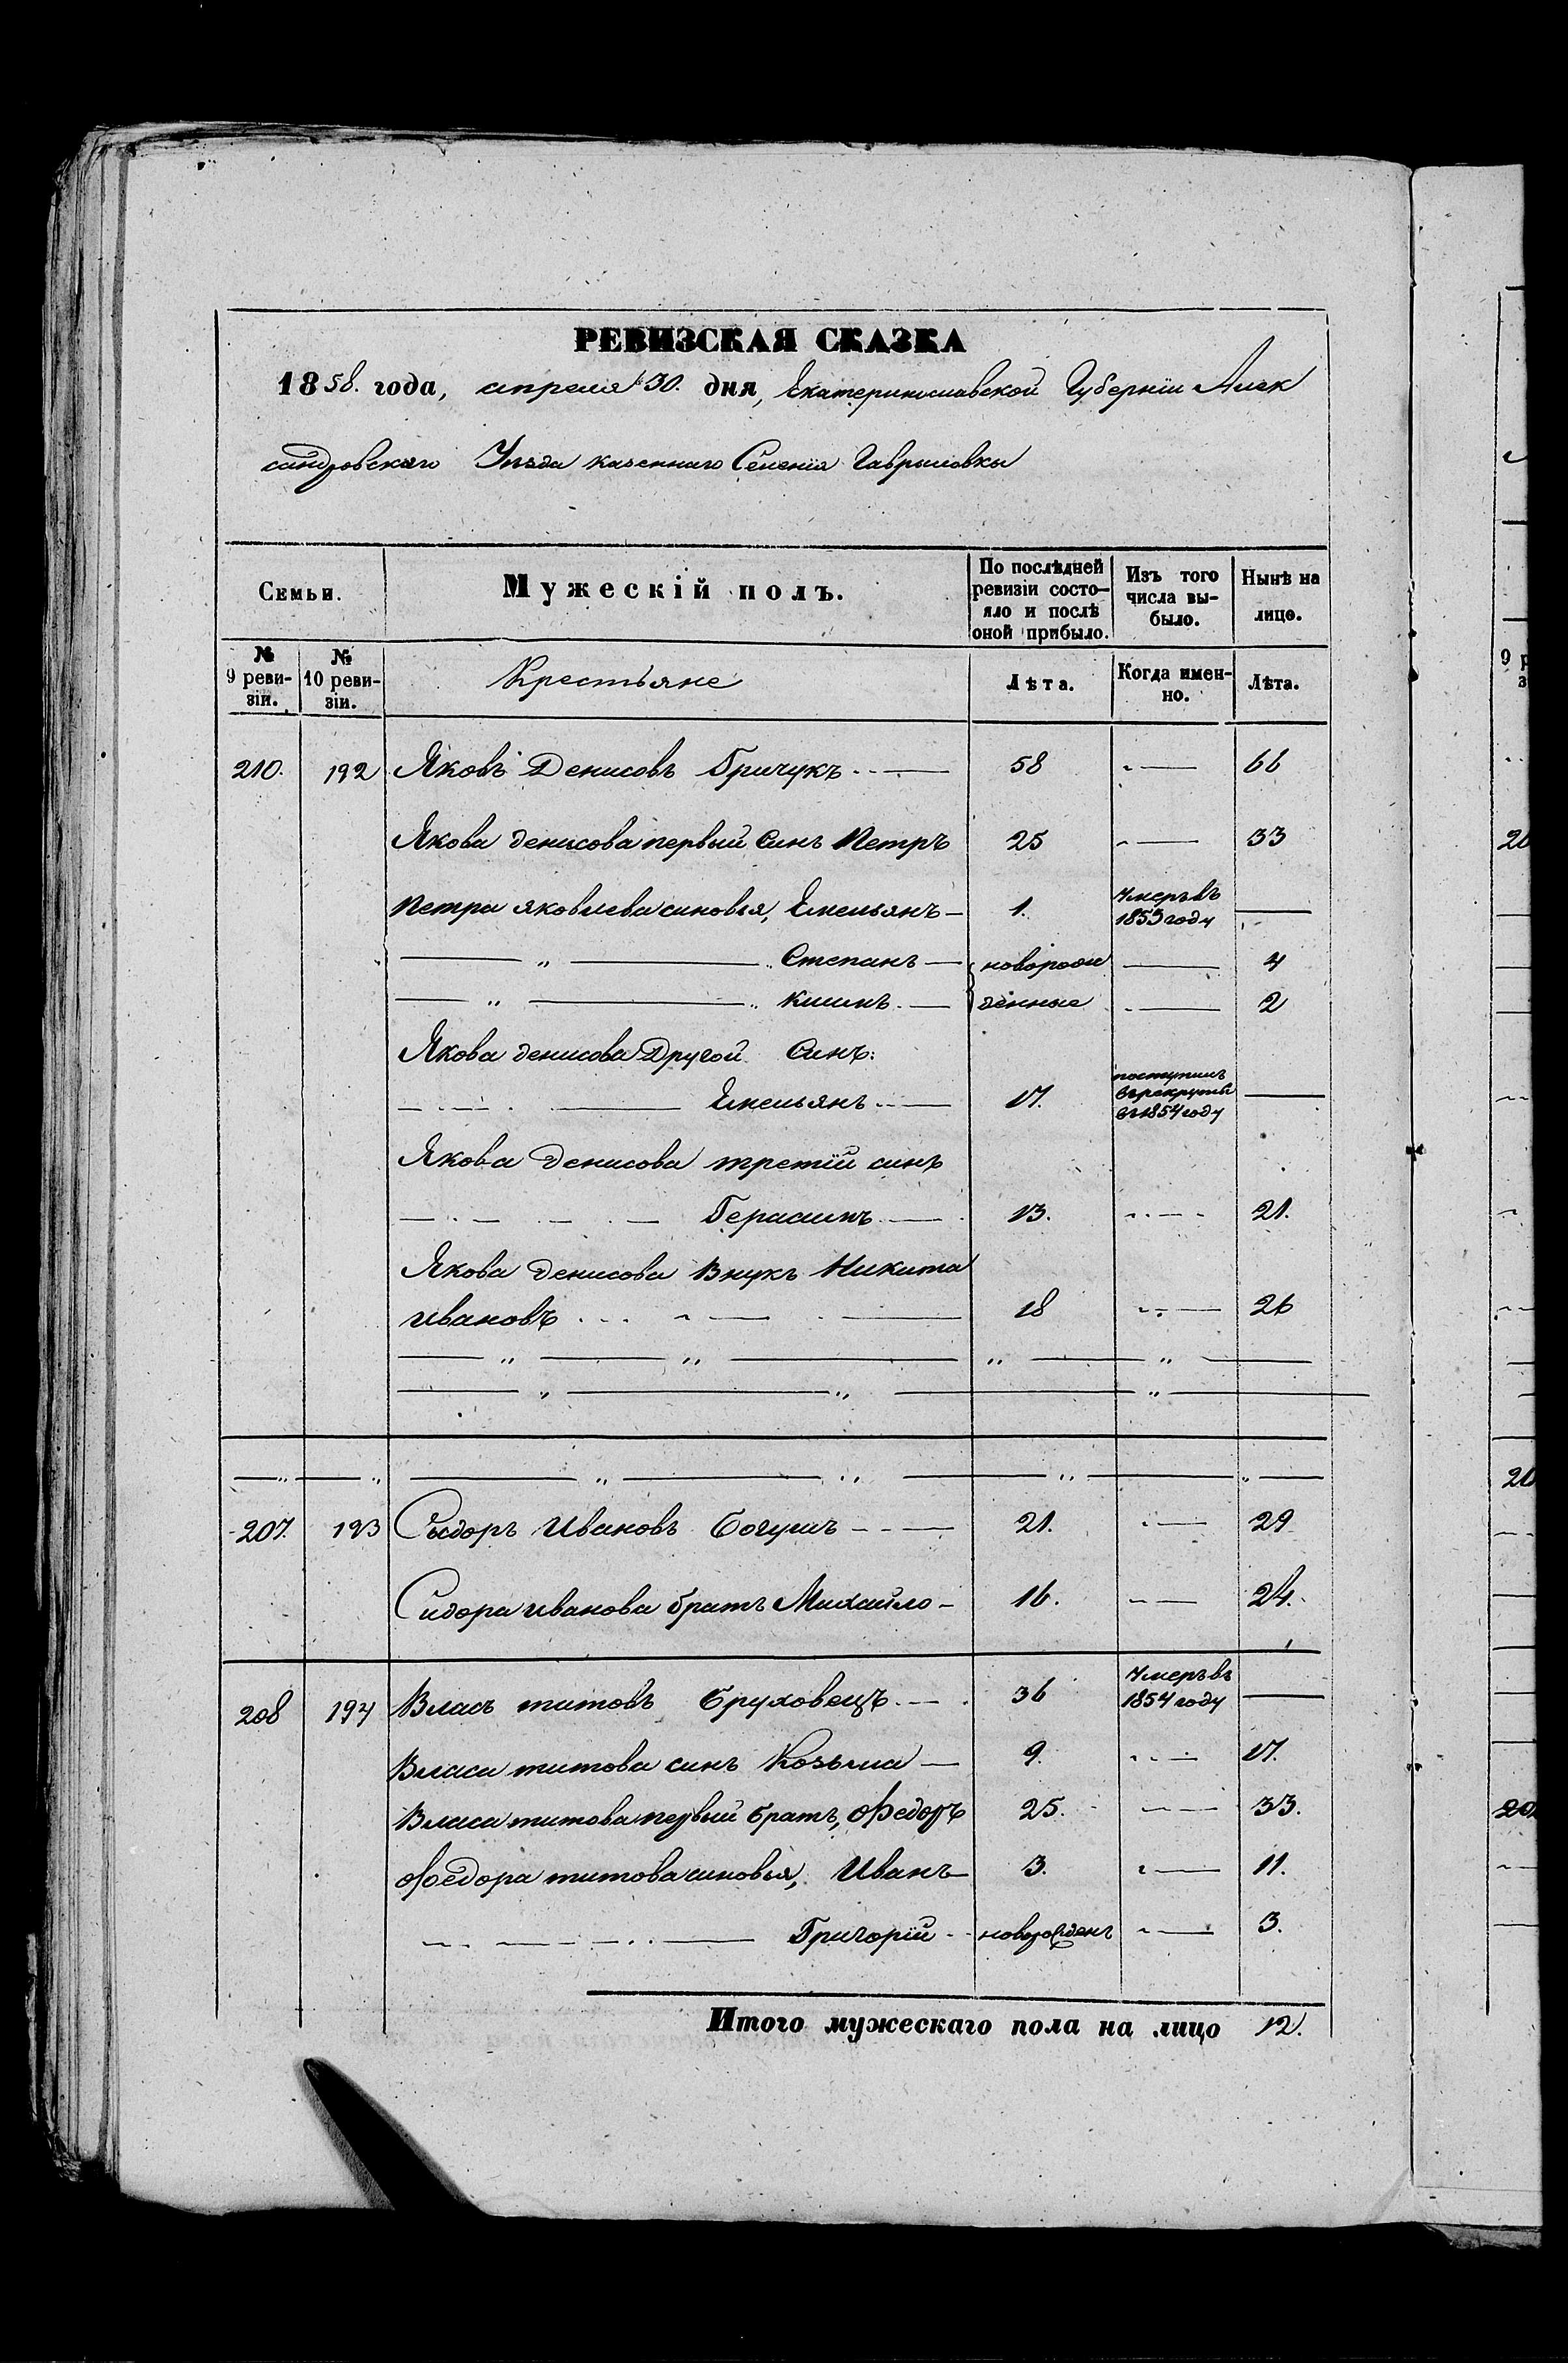 РЕВИЗСКАЯ СКАЗКА
1858. года, апреля 30. дня, Екатеринославской Губерніи Алек
сандровскаго Уѣзда казеннаго Селенія Гавриловки
Семьи. Мужескій полъ. По послѣдней ревизіи состо- яло и послѣ оной прибыло. Изъ того числа вы- было. Нынѣ на лицо.
№ 9 реви- зіи. № 10 реви- зіи. Крестьяне Лѣта. Когда имен- но. Лѣта.
210. 192 Яковъ Денисовъ Гричукъ 58 — 66
Якова денисова первый Синъ Петръ 25 — 33
Петра яковлева синовья, Емельянъ — 1. Умеръ въ 1853 году —
— „ — „ Степанъ — новорож — 4
— „ — „ Климъ — денные — 2
Якова денисова Другой Синъ:
— Емельянъ — 17. поступилъ въ рекруты въ 1854 году —
Якова денисова третій синъ
— Герасимъ — 13. — 21.
Якова денисова Внукъ Никита
ивановъ — 18 — 26
207. 193 Сыдоръ Ивановъ — 21. — 29
Сидора иванова братъ Михайло — 16. — 24.
208 194 Власъ титовъ Бруховецъ — 36 Умеръ въ 1854 году —
Власа титова синъ Козьма — 9. — 17.
Власа титова первый братъ, Федоръ 25. — 33.
Федора титова синовья, Иванъ — 3. — 11.
— Григорій — новорожденъ — 3.
Итого мужескаго пола на лицо 12.
9